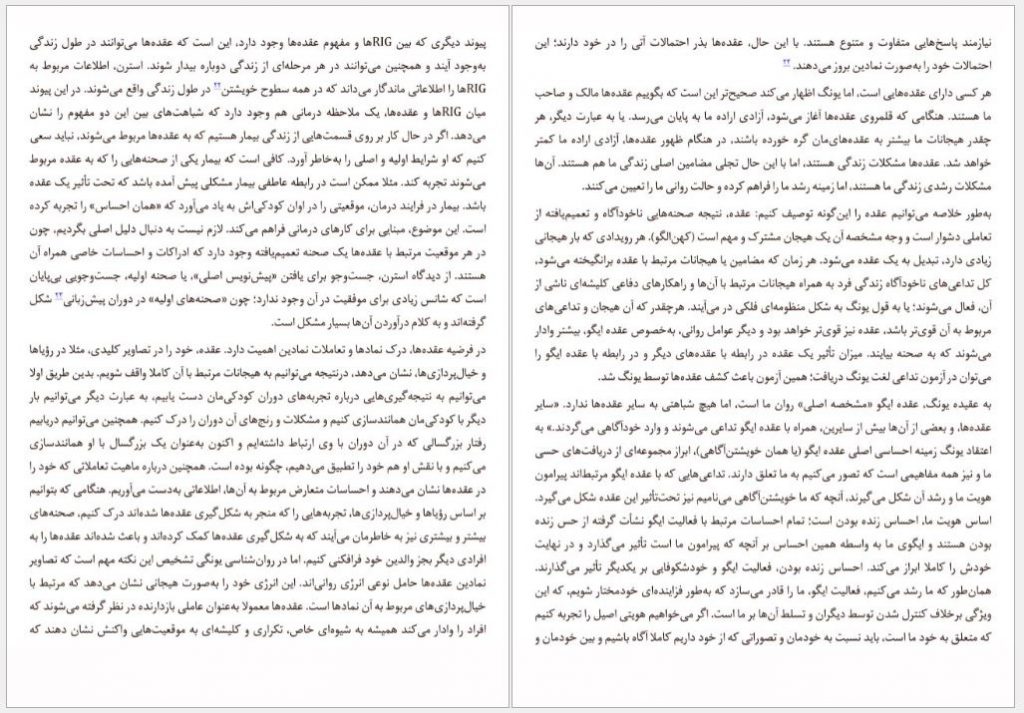 پیوند دیگری که بین RIGها و مفهوم عقده‌ها وجود دارد، این است که عقده‌ها می‌توانند در طول زندگی
به‌وجود آیند و همچنین می‌توانند در هر مرحله‌ای از زندگی دوباره بیدار شوند. استرن، اطلاعات مربوط به
RIGها را اطلاعاتی ماندگار می‌داند که در همه سطوح خویشتن۲۲ در طول زندگی واقع می‌شوند. در این پیوند
میان RIGها و عقده‌ها، یک ملاحظه درمانی هم وجود دارد که شباهت‌های بین این دو مفهوم را نشان
می‌دهد. اگر در حال کار بر روی قسمت‌هایی از زندگی بیمار هستیم که به عقده‌ها مربوط می‌شوند، نباید سعی
کنیم که او شرایط اولیه و اصلی را به‌خاطر آورد. کافی است که بیمار یکی از صحنه‌هایی را که به عقده مربوط
می‌شوند تجربه کند. مثلا ممکن است در رابطه عاطفی بیمار مشکلی پیش آمده باشد که تحت تأثیر یک عقده
باشد. بیمار در فرایند درمان، موقعیتی را در اوان کودکی‌اش به یاد می‌آورد که «همان احساس» را تجربه کرده
است. این موضوع، مبنایی برای کارهای درمانی فراهم می‌کند. لازم نیست به دنبال دلیل اصلی بگردیم، چون
در هر موقعیت مرتبط با عقده‌ها یک صحنه تعمیم‌یافته وجود دارد که ادراکات و احساسات خاصی همراه آن
هستند. از دیدگاه استرن، جست‌وجو برای یافتن «پیش‌نویس اصلی»، یا صحنه اولیه، جست‌وجویی بی‌پایان
است که شانس زیادی برای موفقیت در آن وجود ندارد؛ چون «صحنه‌های اولیه» در دوران پیش‌زبانی۲۳ شکل
گرفته‌اند و به کلام درآوردن آن‌ها بسیار مشکل است.
در فرضیه عقده‌ها، درک نمادها و تعاملات نمادین اهمیت دارد. عقده، خود را در تصاویر کلیدی، مثلا در رؤیاها
و خیال‌پردازی‌ها، نشان می‌دهد، درنتیجه می‌توانیم به هیجانات مرتبط با آن کاملا واقف شویم. بدین طریق اولا
می‌توانیم به نتیجه‌گیری‌هایی درباره تجربه‌های دوران کودکی‌مان دست یابیم، به عبارت دیگر می‌توانیم بار
دیگر با کودکی‌مان همانندسازی کنیم و مشکلات و رنج‌های آن دوران را درک کنیم. همچنین می‌توانیم دریابیم
رفتار بزرگسالی که در آن دوران با وی ارتباط داشته‌ایم و اکنون به‌عنوان یک بزرگسال با او همانندسازی
می‌کنیم و با نقش او هم خود را تطبیق می‌دهیم، چگونه بوده است. همچنین درباره ماهیت تعاملاتی که خود را
در عقده‌ها نشان می‌دهند و احساسات متعارض مربوط به آن‌ها، اطلاعاتی به‌دست می‌آوریم. هنگامی که بتوانیم
بر اساس رؤیاها و خیال‌پردازی‌ها، تجربه‌هایی را که منجر به شکل‌گیری عقده‌ها شده‌اند درک کنیم، صحنه‌های
بیشتر و بیشتری نیز به خاطرمان می‌آیند که به شکل‌گیری عقده‌ها کمک کرده‌اند و باعث شده‌اند عقده‌ها را به
افرادی دیگر بجز والدین خود فرافکنی کنیم. اما در روان‌شناسی یونگی تشخیص این نکته مهم است که تصاویر
نمادین عقده‌ها حامل نوعی انرژی روانی‌اند. این انرژی خود را به‌صورت هیجانی نشان می‌دهد که مرتبط با
خیال‌پردازی‌های مربوط به آن نمادها است. عقده‌ها معمولا به‌عنوان عاملی بازدارنده در نظر گرفته می‌شوند که
افراد را وادار می‌کند همیشه به شیوه‌ای خاص، تکراری و کلیشه‌ای به موقعیت‌هایی واکنش نشان دهند که
نیازمند پاسخ‌هایی متفاوت و متنوع هستند. با این حال، عقده‌ها بذر احتمالات آتی را در خود دارند؛ این
احتمالات خود را به‌صورت نمادین بروز می‌دهند. ۲۴
هر کسی دارای عقده‌هایی است، اما یونگ اظهار می‌کند صحیح‌تر این است که بگوییم عقده‌ها مالک و صاحب
ما هستند. هنگامی که قلمروی عقده‌ها آغاز می‌شود، آزادی اراده ما به پایان می‌رسد. یا به عبارت دیگر، هر
چقدر هیجانات ما بیشتر به عقده‌های‌مان گره خورده باشند، در هنگام ظهور عقده‌ها، آزادی اراده ما کمتر
خواهد شد. عقده‌ها مشکلات زندگی هستند، اما با این حال تجلی مضامین اصلی زندگی ما هم هستند. آن‌ها
مشکلات رشدی زندگی ما هستند، اما زمینه رشد ما را فراهم کرده و حالت روانی ما را تعیین می‌کنند.
به‌طور خلاصه می‌توانیم عقده را این‌گونه توصیف کنیم: عقده، نتیجه صحنه‌هایی ناخودآگاه و تعمیم‌یافته از
تعاملی دشوار است و وجه مشخصه آن یک هیجان مشترک و مهم است (کهن‌الگو). هر رویدادی که بار هیجانی
زیادی دارد، تبدیل به یک عقده می‌شود. هر زمان که مضامین یا هیجانات مرتبط با عقده برانگیخته می‌شود،
کل تداعی‌های ناخودآگاه زندگی فرد به همراه هیجانات مرتبط با آن‌ها و راهکارهای دفاعی کلیشه‌ای ناشی از
آن، فعال می‌شوند؛ یا به قول یونگ به شکل منظومه‌ای فلکی در می‌آیند. هرچقدر که آن هیجان و تداعی‌های
مربوط به آن قوی‌تر باشد، عقده نیز قوی‌تر خواهد بود و دیگر عوامل روانی، به‌خصوص عقده ایگو، بیشتر وادار
می‌شوند که به صحنه بیایند. میزان تأثیر یک عقده در رابطه با عقده‌های دیگر و در رابطه با عقده ایگو را
می‌توان در آزمون تداعی لغت یونگ دریافت؛ همین آزمون باعث کشف عقده‌ها توسط یونگ شد.
به عقیده یونگ، عقده ایگو «مشخصه اصلی» روان ما است، اما هیچ شباهتی به سایر عقده‌ها ندارد. «سایر
عقده‌ها، و بعضی از آن‌ها بیش از سایرین، همراه با عقده ایگو تداعی می‌شوند و وارد خودآگاهی می‌گردند.» به
اعتقاد یونگ زمینه احساسی اصلی عقده ایگو (یا همان خویشتن‌آگاهی)، ابراز مجموعه‌ای از دریافت‌های حسی
ما و نیز همه مفاهیمی است که تصور می‌کنیم به ما تعلق دارند. تداعی‌هایی که با عقده ایگو مرتبط‌اند پیرامون
هویت ما و رشد آن شکل می‌گیرند، آنچه که ما خویشتن‌آگاهی می‌نامیم نیز تحت‌تأثیر این عقده شکل می‌گیرد.
اساس هویت ما، احساس زنده بودن است؛ تمام احساسات مرتبط با فعالیت ایگو نشأت گرفته از حس زنده
بودن هستند و ایگوی ما به واسطه همین احساس بر آنچه که پیرامون ما است تأثیر می‌گذارد و در نهایت
خودش را کاملا ابراز می‌کند. احساس زنده بودن، فعالیت ایگو و خودشکوفایی بر یکدیگر تأثیر می‌گذارند.
همان‌طور که ما رشد می‌کنیم، فعالیت ایگو، ما را قادر می‌سازد که به‌طور فزاینده‌ای خودمختار شویم، که این
ویژگی برخلاف کنترل شدن توسط دیگران و تسلط آن‌ها بر ما است. اگر می‌خواهیم هویتی اصیل را تجربه کنیم
که متعلق به خود ما است، باید نسبت به خودمان و تصوراتی که از خود داریم کاملا آگاه باشیم و بین خودمان و